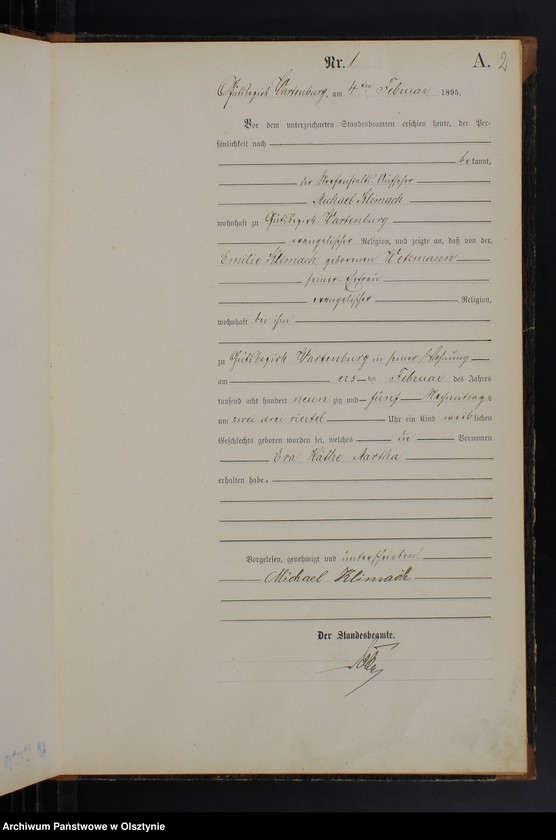 Nr. 1
A. 2
Gutsbezirk Wartenburg, am 4ten Februar 1895.
Vor dem unterzeichneten Standesbeamten erschien heute, der Per-
sönlichkeit nach
be kannt,
der Strafanstalts Aufseher
Michael Klimach
wohnhaft zu Gutsbezirk Wartenburg
evangelischer Religion, und zeigte an, daß von der
Emilie Klimach geborenen
seiner Ehefrau
evangelischer Religion,
wohnhaft bei ihm
zu Gutsbezirk Wartenburg in seiner Wohnung
am ersten Februar des Jahres
tausend acht hundert neun zig und fünf Nachmittags
um zwei drei viertel Uhr ein Kind weiblichen
Geschlechts geboren worden sei, welches die Vornamen
Eva Käthe Martha
erhalten habe.
Vorgelesen, genehmigt und unterschrieben
Michael Klimach
Der Standesbeamte.
Archiwum Państwowe w Olsztynie